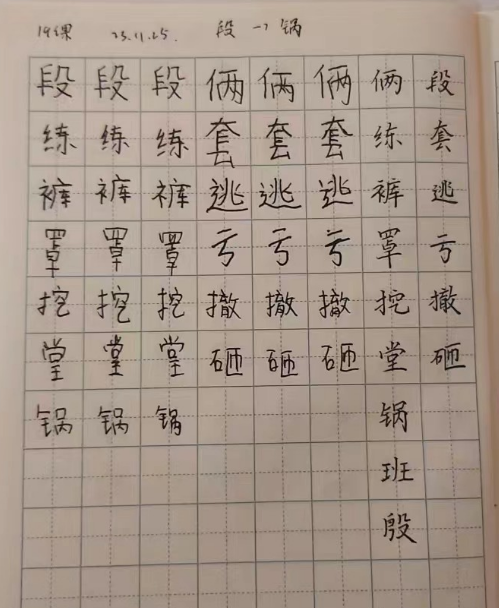 19课 25.11.25. 段→锅
段段段俩俩俩俩段
练练练套套套练套
裤裤裤逃逃逃裤逃
罩罩罩亏亏亏罩亏
挖挖挖撤撤撤挖撤
堂堂堂砸砸砸堂砸
锅锅锅锅
班
殷